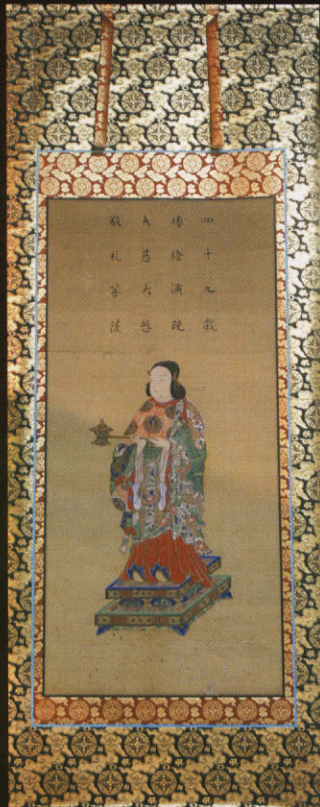 四十九歳
傳燈演説
大慈大悲
敬礼菩薩